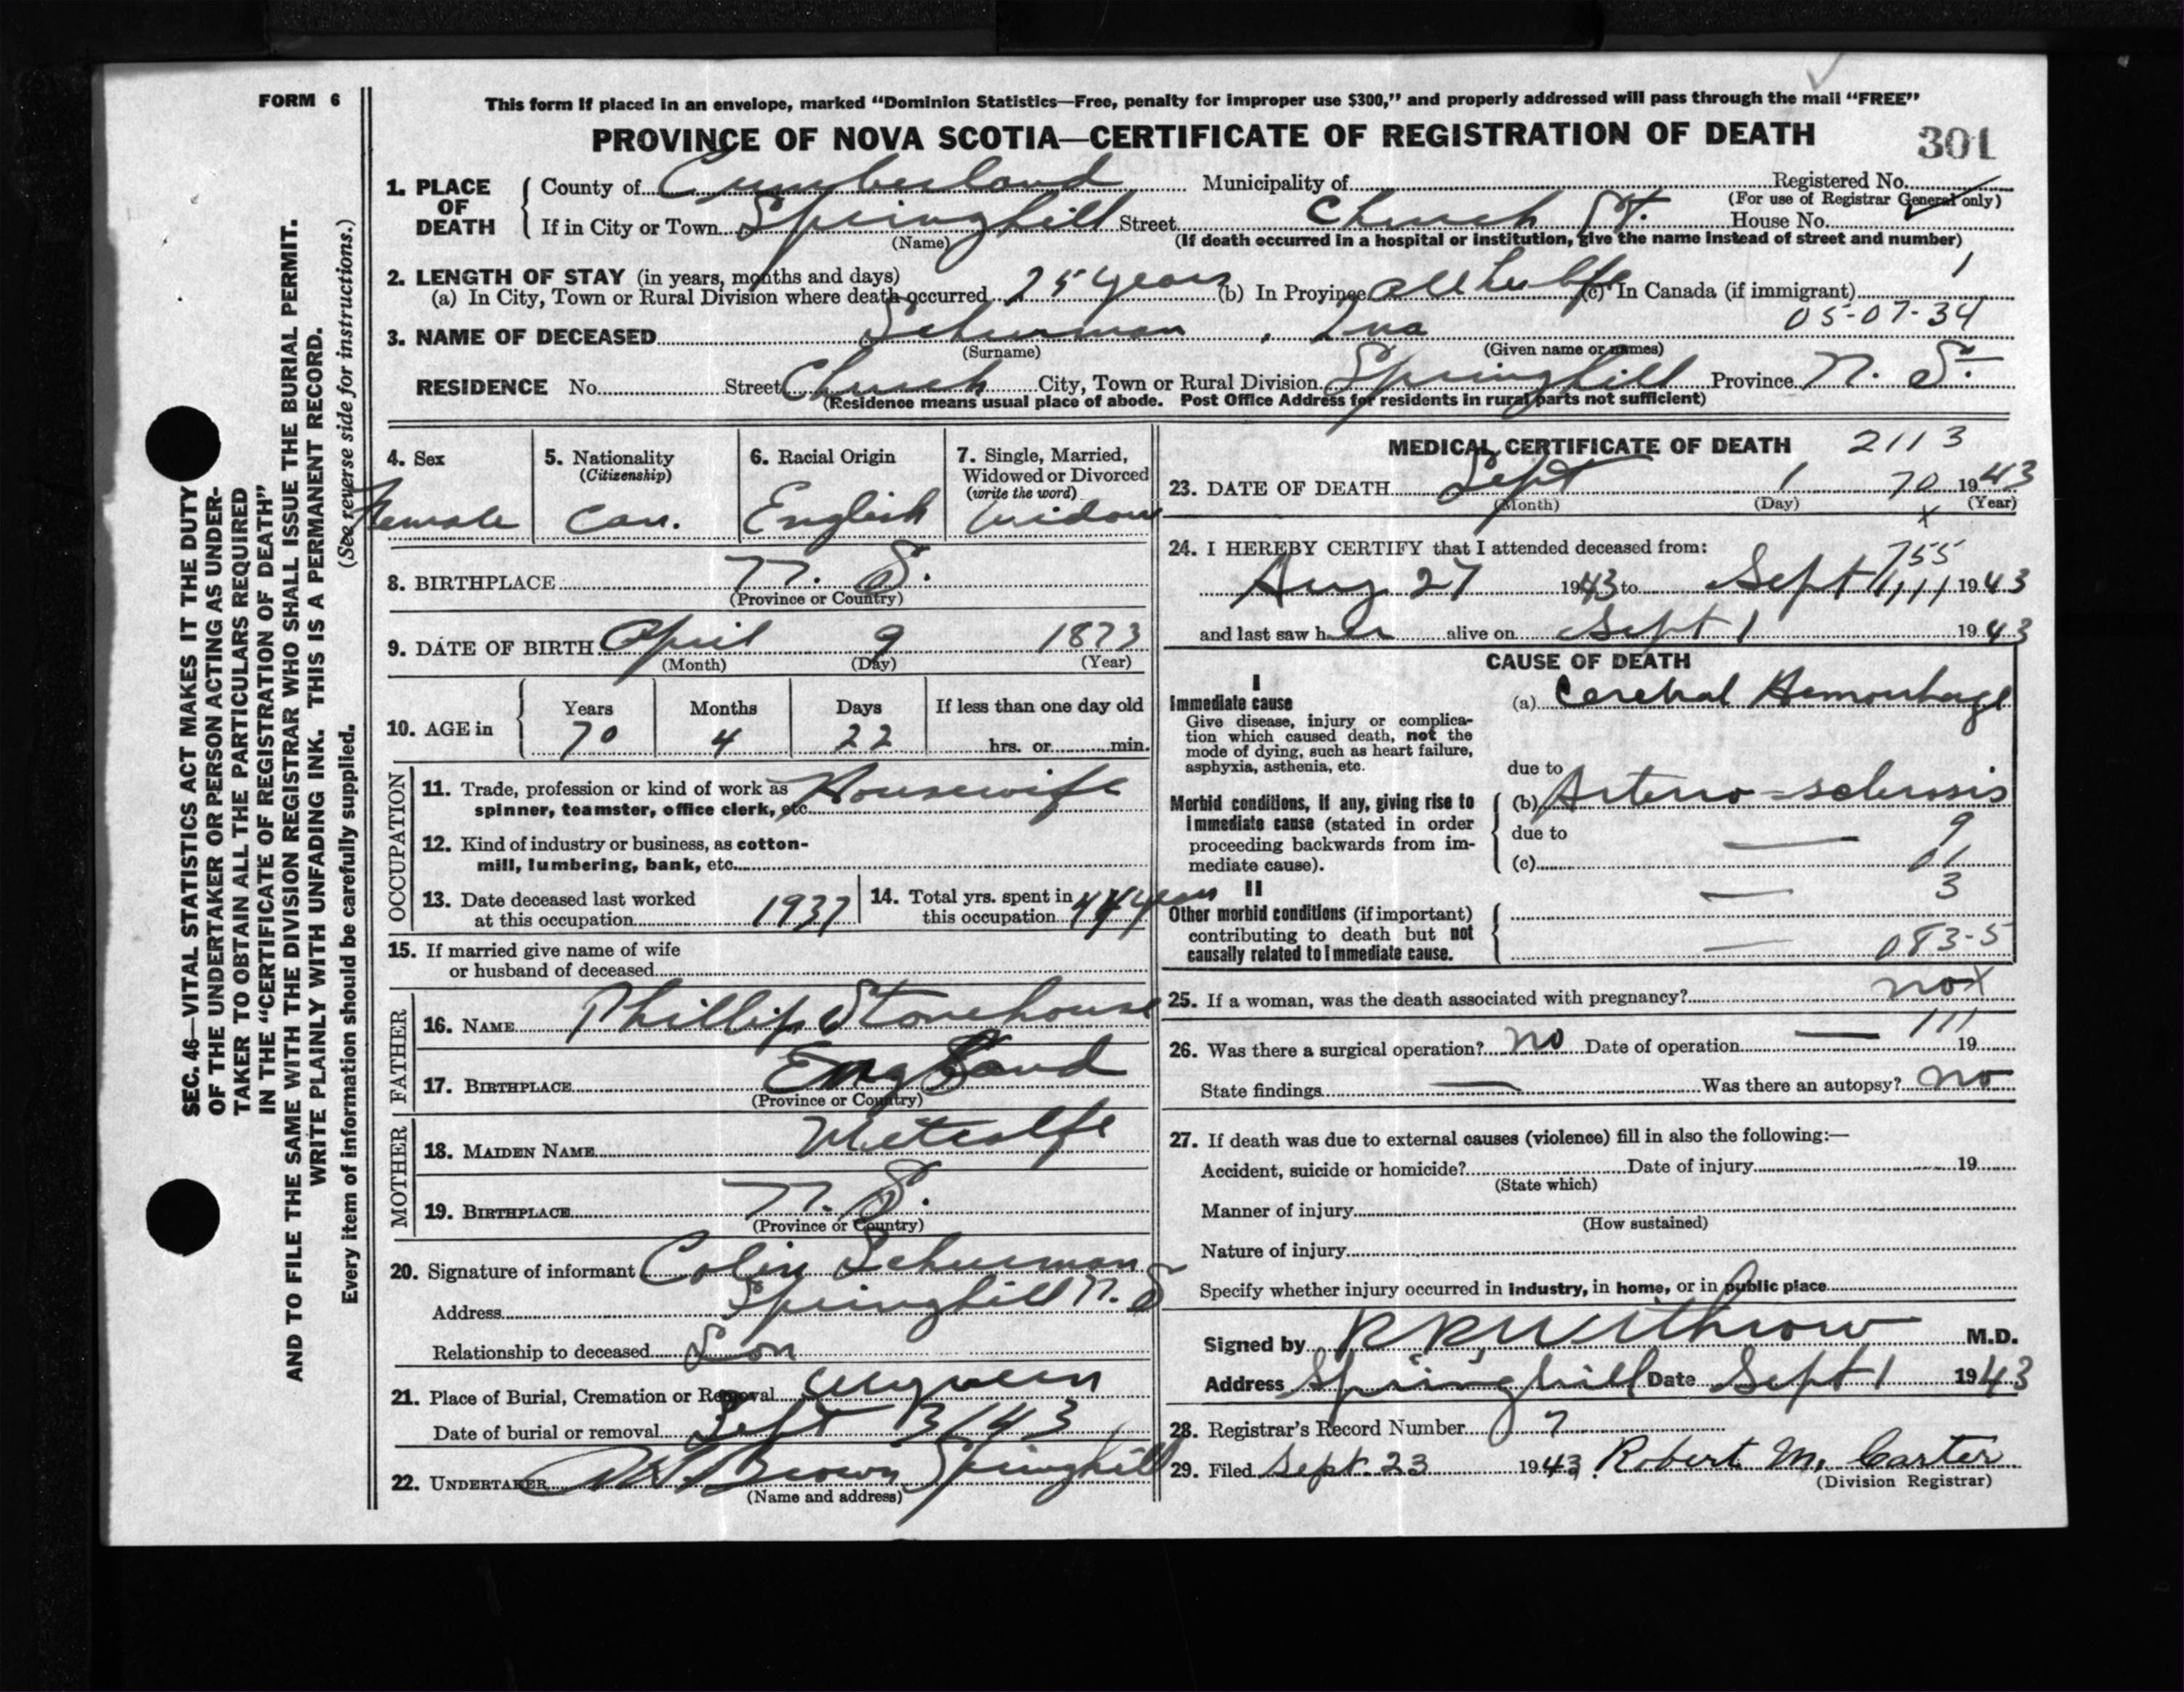 FORM 6
This form if placed in an envelope, marked “Dominion Statistics—Free, penalty for improper use $300,” and properly addressed will pass through the mail “FREE”
PROVINCE OF NOVA SCOTIA—CERTIFICATE OF REGISTRATION OF DEATH
301
SEC. 46—VITAL STATISTICS ACT MAKES IT THE DUTY
OF THE UNDERTAKER OR PERSON ACTING AS UNDER-
TAKER TO OBTAIN ALL THE PARTICULARS REQUIRED
IN THE “CERTIFICATE OF REGISTRATION OF DEATH”
AND TO FILE THE SAME WITH THE DIVISION REGISTRAR WHO SHALL ISSUE THE BURIAL PERMIT.
WRITE PLAINLY WITH UNFADING INK. THIS IS A PERMANENT RECORD.
Every item of information should be carefully supplied. (See reverse side for instructions.)
1. PLACE OF DEATH County of Cumberland Municipality of Registered No.
(For use of Registrar General only)
If in City or Town Springhill Street Church St. House No.
(Name) (If death occurred in a hospital or institution, give the name instead of street and number)
2. LENGTH OF STAY (in years, months and days) 1
(a) In City, Town or Rural Division where death occurred 25 years (b) In Province All her life (c) In Canada (if immigrant)
05-07-34
3. NAME OF DECEASED Schurman, Ina
(Surname) (Given name or names)
RESIDENCE No. Street Church City, Town or Rural Division Springhill Province N. S.
(Residence means usual place of abode. Post Office Address for residents in rural parts not sufficient)
4. Sex Female
5. Nationality (Citizenship) Can.
6. Racial Origin English
7. Single, Married, Widowed or Divorced (write the word) Widow
8. BIRTHPLACE N. S.
(Province or Country)
9. DATE OF BIRTH April 9 1873
(Month) (Day) (Year)
10. AGE in Years 70 Months 4 Days 22 If less than one day old hrs. or min.
OCCUPATION
11. Trade, profession or kind of work as spinner, teamster, office clerk, etc. Housewife
12. Kind of industry or business, as cotton-
mill, lumbering, bank, etc.
13. Date deceased last worked at this occupation 1937
14. Total yrs. spent in this occupation 44 years
15. If married give name of wife
or husband of deceased
FATHER
16. NAME Phillip Stonehouse
17. BIRTHPLACE England
(Province or Country)
MOTHER
18. MAIDEN NAME Metcalfe
19. BIRTHPLACE N. S.
(Province or Country)
20. Signature of informant Colin Schurman
Address Springhill N. S
Relationship to deceased Son
21. Place of Burial, Cremation or Removal
Date of burial or removal Sept 3/43
22. UNDERTAKER Brown Springhill
(Name and address)
MEDICAL CERTIFICATE OF DEATH 2113
23. DATE OF DEATH Sept 1 70 1943
(Month) (Day) (Year)
x
24. I HEREBY CERTIFY that I attended deceased from:
755
Aug 27 1943 to Sept 1 1943
and last saw her alive on Sept 1 1943
CAUSE OF DEATH
I
Immediate cause (a) Cerebral Hemorrhage
Give disease, injury or complica-
tion which caused death, not the
mode of dying, such as heart failure,
asphyxia, asthenia, etc.
due to
Morbid conditions, if any, giving rise to (b) Arterio-sclerosis
immediate cause (stated in order due to — 9
proceeding backwards from im-
mediate cause). (c)
II — 3
Other morbid conditions (if important)
contributing to death but not
causally related to immediate cause. — 083-5
25. If a woman, was the death associated with pregnancy? no x
111
26. Was there a surgical operation? No Date of operation — 19
State findings — Was there an autopsy? no
27. If death was due to external causes (violence) fill in also the following:—
Accident, suicide or homicide? Date of injury 19
(State which)
Manner of injury
(How sustained)
Nature of injury
Specify whether injury occurred in industry, in home, or in public place
Signed by R R Withrow M.D.
Address Springhill Date Sept 1 1943
28. Registrar's Record Number 7
29. Filed Sept. 23 1943. Robert M. Carter
(Division Registrar)